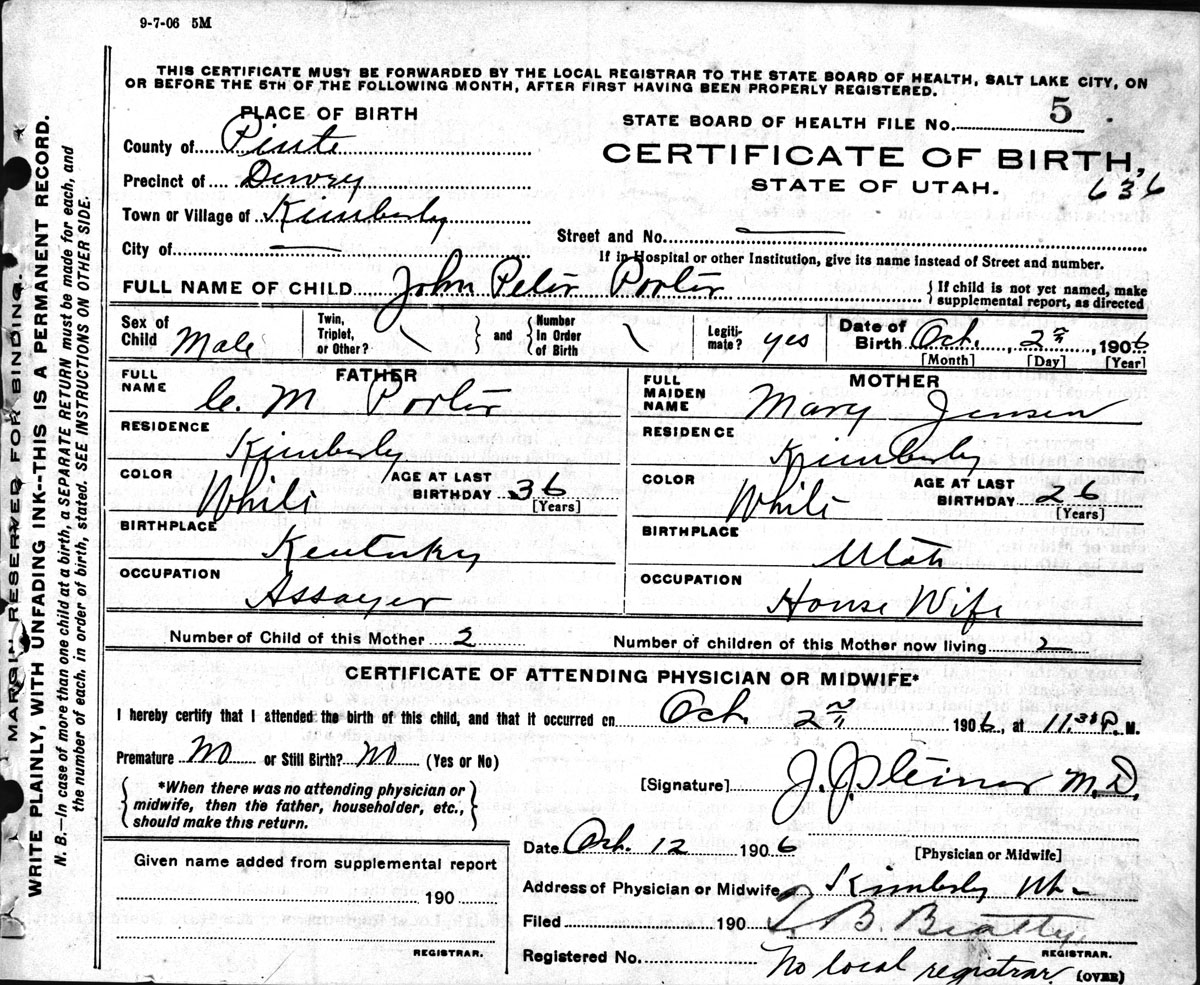 9-7-06 5M
THIS CERTIFICATE MUST BE FORWARDED BY THE LOCAL REGISTRAR TO THE STATE BOARD OF HEALTH, SALT LAKE CITY, ON
OR BEFORE THE 5TH OF THE FOLLOWING MONTH, AFTER FIRST HAVING BEEN PROPERLY REGISTERED.
PLACE OF BIRTH
County of Piute
Precinct of Dewey
Town or Village of Kimberly
City of
STATE BOARD OF HEALTH FILE No. 5
CERTIFICATE OF BIRTH,
STATE OF UTAH.
636
Street and No.
If in Hospital or other Institution, give its name instead of Street and number.
FULL NAME OF CHILD John Peter Porter { If child is not yet named, make
supplemental report, as directed
Sex of
Child Male
Twin,
Triplet,
or Other?
and
Number
In Order
of Birth
Legiti-
mate? yes
Date of
Birth Oct. 2nd, 1906
[Month] [Day] [Year]
FATHER
FULL
NAME C. M Porter
RESIDENCE
Kimberly
COLOR White
AGE AT LAST
BIRTHDAY 36
[Years]
BIRTHPLACE
Kentucky
OCCUPATION
Assayer
MOTHER
FULL
MAIDEN
NAME Mary Jensen
RESIDENCE
Kimberly
COLOR White
AGE AT LAST
BIRTHDAY 26
[Years]
BIRTHPLACE
Utah
OCCUPATION
House Wife
Number of Child of this Mother 2 Number of children of this Mother now living 2
CERTIFICATE OF ATTENDING PHYSICIAN OR MIDWIFE*
I hereby certify that I attended the birth of this child, and that it occurred on Oct. 2nd 1906, at 11.38 P. M.
Premature No or Still Birth? No (Yes or No)
*When there was no attending physician or
midwife, then the father, householder, etc.,
should make this return.
[Signature] J. J. Steiner M.D.
Date Oct. 12 1906 [Physician or Midwife]
Address of Physician or Midwife Kimberly Ut
Filed 190 B. Beatty
REGISTRAR.
Registered No. No local registrar (OVER)
Given name added from supplemental report
190
REGISTRAR.
MARGIN RESERVED FOR BINDING.
WRITE PLAINLY, WITH UNFADING INK--THIS IS A PERMANENT RECORD.
N. B.--In case of more than one child at a birth, a SEPARATE RETURN must be made for each, and
the number of each, in order of birth, stated. SEE INSTRUCTIONS ON OTHER SIDE.